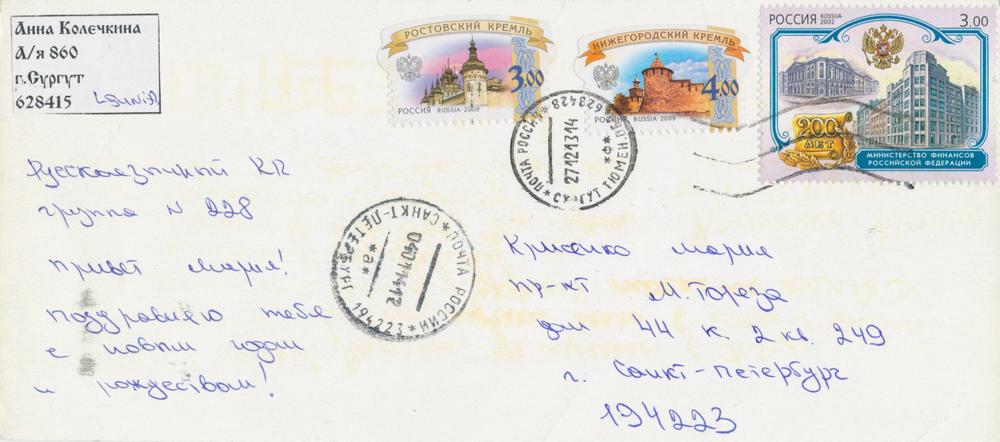 Анна Колечкина
А/я 860
г.Сургут
628415
РОСТОВСКИЙ КРЕМЛЬ
3.00
РОССИЯ RUSSIA·2009
НИЖЕГОРОДСКИЙ КРЕМЛЬ
4.00
РОССИЯ RUSSIA·2009
РОССИЯ RUSSIA 2002
3.00
200 ЛЕТ
МИНИСТЕРСТВО ФИНАНСОВ
РОССИЙСКОЙ ФЕДЕРАЦИИ
ПОЧТА РОССИИ
628428
27121314
Русскоязычный
группа N 228
Привет Мария!
поздравляю тебя
с новым годом
и рождеством!
ПОЧТА РОССИИ
САНКТ-ПЕТЕРБУРГ
*а*
194223
04011412
Мария
пр-кт М. Тореза
дом 44 к. 2 кв. 249
г. Санкт-Петербург
194223